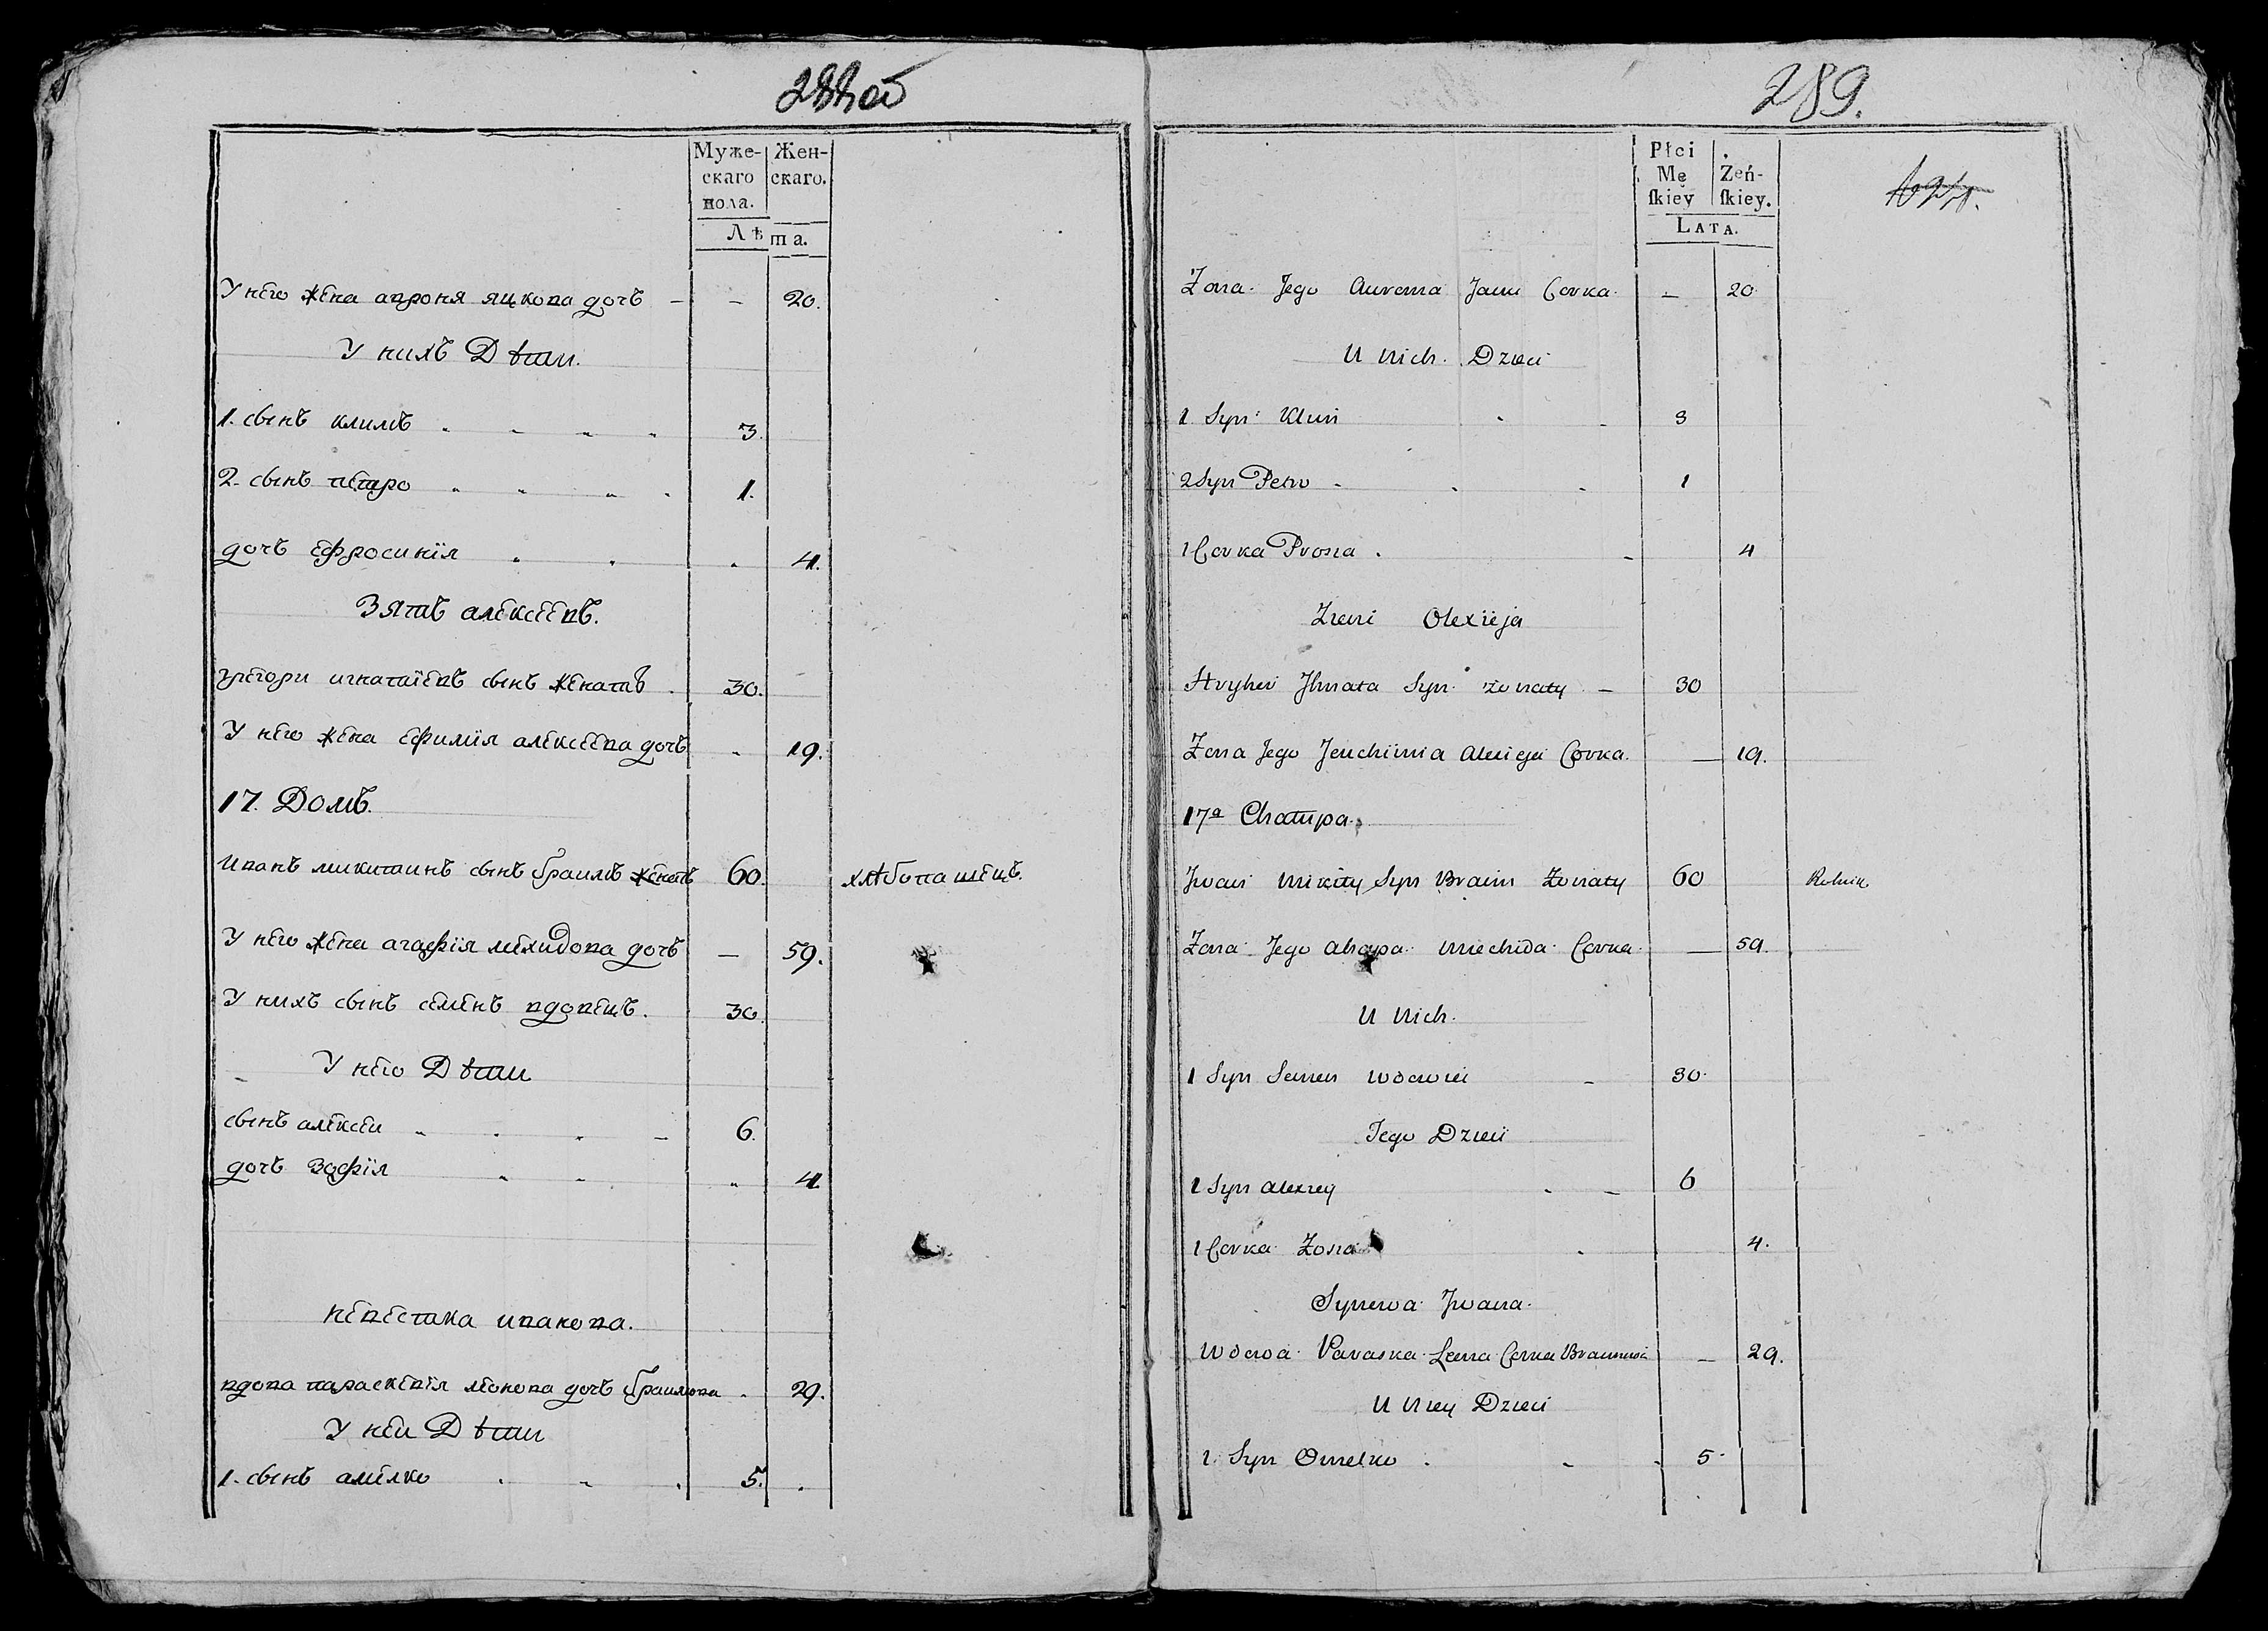 288об
Муже-
скаго
пола.
Жен-
скаго.
Лѣта.
У него жена авроня яцкова дочь - - 20.
У нихъ Дѣти.
1. сынъ климъ 3.
2. сынъ петро 1.
дочь ефросинія 4.
Зять алексеевъ.
григори игнатіевъ сынъ женатъ 30.
У него жена ефимія алексеева дочь 19.
17. Домъ.
иванъ микитинъ сынъ браимъ женатъ 60. хлѣбопашецъ.
У него жена агафія мехидова дочь — 59.
У нихъ сынъ семенъ вдовецъ. 30.
У него Дѣти
сынъ алексеи 6.
дочь зофія 4.
невестка иванова.
вдова параскевія леонова дочь браимова 29.
У неи Дѣти
1. сынъ амелко 5.
289.
Płci
Mę
skiey
Żeń-
skiey.
LATA.
Zona Jego Awronia Jacu Corka — 20
U Nich Dzieci
1 Syn Klim 3
2 Syn Petro 1
1 Corka Prosia 4
Zieni Olexieja
Hryhor Jhnata Syn żonaty — 30
Zona Jego Jeuchimia Alexieja Corka — 19.
17a Chałupa
Jwan Mikity Syn Braim Żonaty 60 Rolnik
Zona Jego Ahapa Miechida Corka — 59.
U Nich
1 Syn Semen Wdowiec 30
Jego Dzieci
1 Syn Alexiey 6
1 Corka Zosia 4.
Synowa Jwana
Wdowa Paraska Leona Corka Braimowa — 29.
U Niey Dzieci
1. Syn Omelko 5